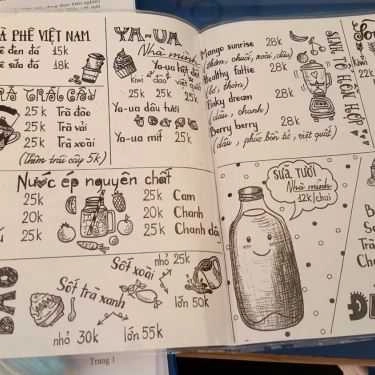 À PHÊ VIỆT NAM
ê đen đá 15k
ê sữa đá 18k
TRÀ TRÁI CÂY
25k Trà đào
25k Trà vải
25k Trà xoài
(Thêm trái cây 5k)
YA-UA
Nhà mình
Ya-ua hạt dẻ
Kiwi dâo việt quất
25k 25k 25k
Ya-ua dâu tươi 25k
Ya-ua mít 25k
Nước ép nguyên chất
25k 25k Cam
20k 20k Chanh
25k 25k Chanh dâ
BÀO
Sốt xoài nhỏ 25k
lớn 50k
Sốt trà xanh
nhỏ 30k lớn 55k
Trang 1
Mango sunrise 28k
(thơm, chuối, xoài, dâu)
Healthy fattie 28k
(bơ, thơm)
Pinky dream 28k
(dâu, chanh)
Berry berry 28k
(dâu, phúc bồn tử, việt quất)
SINH TỐ HỖN HỢP
SỮA TƯƠI
Nhà mình
12k/chai